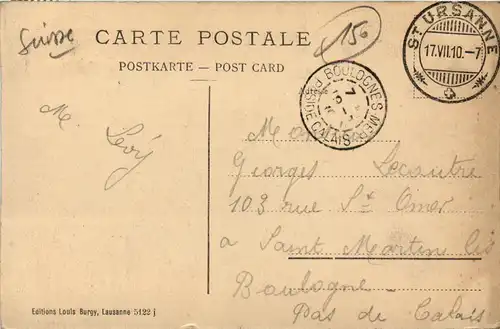 Suisse
CARTE POSTALE
POSTKARTE — POST CARD
150
ST URSANNE
17.VII.10.–7
BOULOGNE S MER
PAS DE CALAIS
M. Levÿ
Georges Lecoutre
103 rue St Omer
a Saint Martin lès
Boulogne
Pas de Calais
Editions Louis Burgy, Lausanne 5122 j